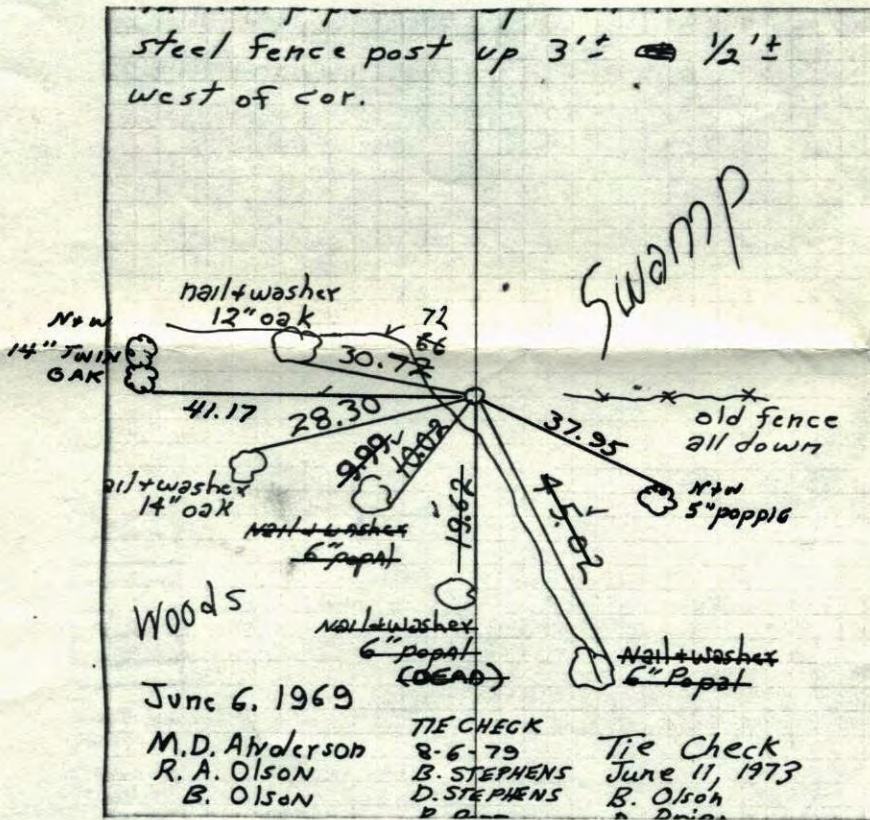 steel fence post up 3'± 1/2'±
west of cor.
Swamp
nail+washer
12" oak
72
66
30.78
N+W
14" TWIN
OAK
41.17
28.30
9.99
10.02
19.62
45.02
37.95
old fence
all down
N+W
5" popple
ail+washer
14" oak
Nail+washer
6" popal
Nail+washer
6" popal
(DEAD)
Nail+washer
6" Popal
Woods
June 6, 1969
M.D. Anderson
R. A. Olson
B. Olson
TIE CHECK
8-6-79
B. STEPHENS
D. STEPHENS
Tie Check
June 11, 1973
B. Olson